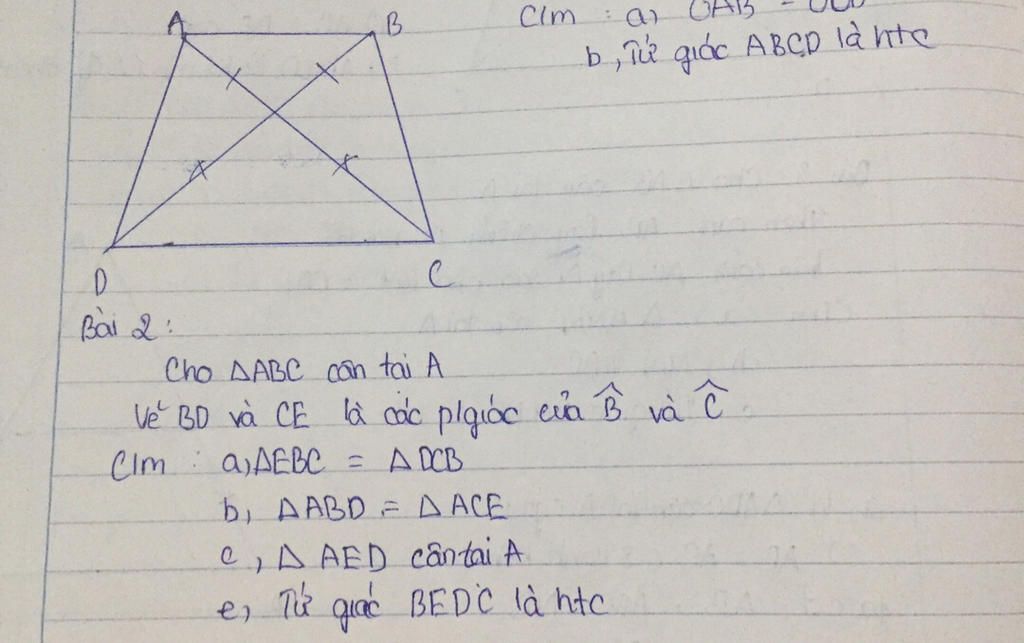 C/m : a,
b, Tứ giác ABCD là htc
A B
D C
Bài 2 :
Cho ΔABC cân tại A
Vẽ BD và CE là các p/giác của B̂ và Ĉ
C/m : a, ΔEBC = ΔDCB
b, ΔABD = ΔACE
c, Δ AED cân tại A
e, Tứ giác BEDC là htc